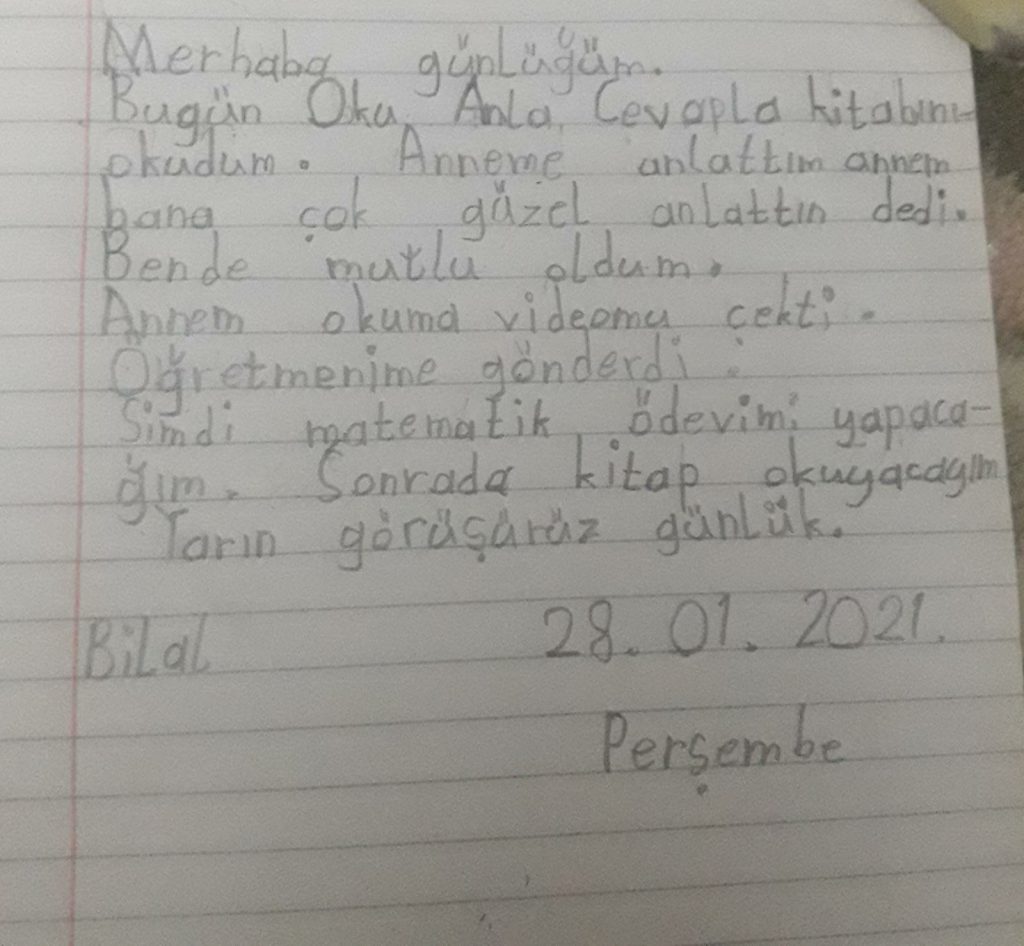 Merhaba günlüğüm.
Bugün Oku, Anla, Cevapla kitabını
okudum. Anneme anlattım annem
bana çok güzel anlattın dedi.
Bende mutlu oldum.
Annem okuma videomu çekti.
Öğretmenime gönderdi.
Simdi matematik ödevimi yapaca-
ğım. Sonrada kitap okuyacagım
Yarın görüşürüz günlük.
Bilal 28.01.2021.
Perşembe